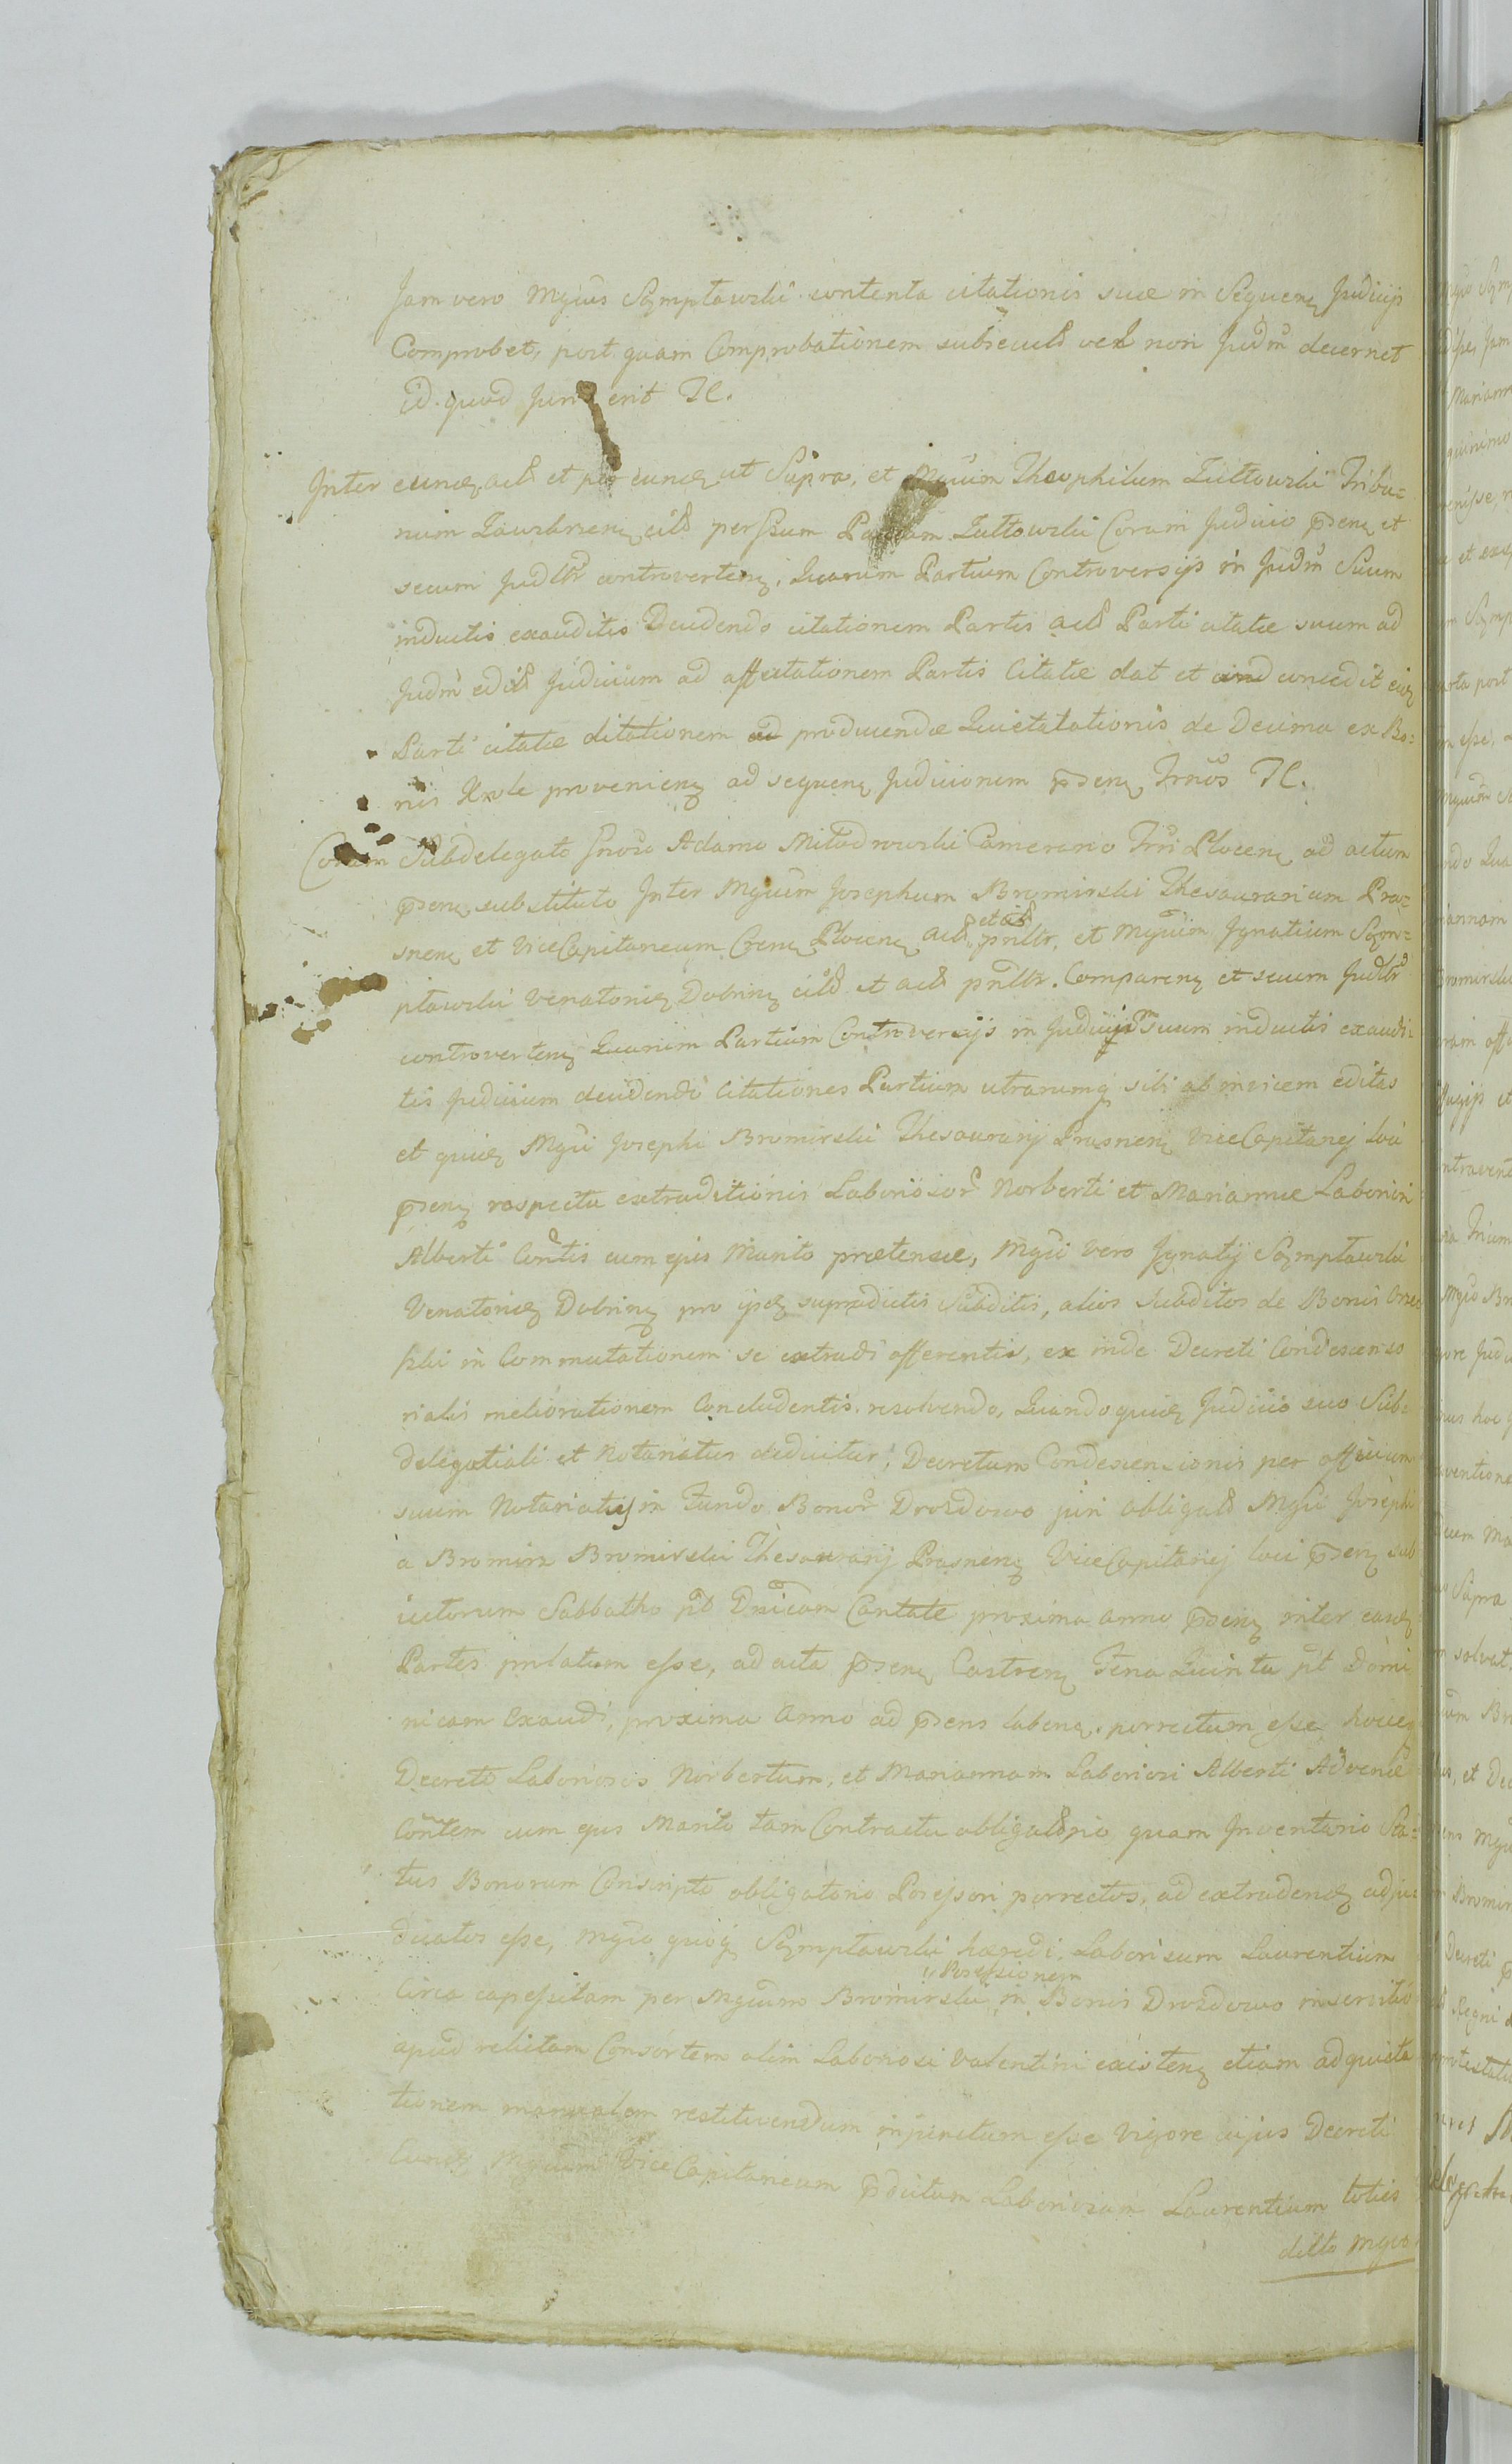 Jam vero Mgcus Sęmpławski contenta citationis suae in Sequenq Judicijs
Comprobet, post quam Comprobationem subsecut vel non Judm decernet
id quod Juris erit TC.
Inter eunq act et per eunq ut Supra, et Mgcum Theophilum Zułtowski Tribu=
num Zawskrzenq cit Coram Judicio pnt et
secum Judltr controvertenq, Quarum Partium Controversijs in Judm Suum
inductis exauditis Decidendo citationem Partis act Parti citatae suum ad
Judm edit Judicium ad affectationem Partis Citatae dat et concedit eiq
Parti citatae dilationem producendae Quietationis de Decima ex Bo=
nis provenienq ad sequenq Judiciorum Trnos TC.
Coram Subdelegato Gnoso Adamo Milodrowski Camerario Trri Plocenq ad actum
substituto Inter Mgcum Josephum Bromirski Thesaurarium Pra=
snenq et ViceCapitaneum Crenq Plocenq act et cit pnltr. et Mgcum Ignatium Sęm=
pławski Venatorieq Dobrinq cit et act pnltr. Comparenq et secum Judltr
controvertenq Quarum Partium Controversijs in Judicij Suum inductis exaudi=
tis Judicium decidendo Citationes Partium utrarumq sibi ab invicem editas
et quieq Mgci Josephi Bromirski Thesaurarij Prasnenq ViceCapitanej loci
respectu extraditionis Laboriosor Norberti et Mariannae Laboriosi
Alberti Contis cum ejus Marito praetensae, Mgci vero Ignatij Sęmpławski
Venatorieq Dobrinq pro ijsq supradictis Subditis, alios Subditos de Bonis
in Commutationem se extradi offerentis, ex inde Decreti Condescenso
rialis meliorationem Concludentis resolvendo, Quandoquieq Judicio suo Sub=
delegatiali et Notariatus deducitur, Decretum Condescensionis per officium
suum Notariatus in Fundo Bonor Drozdowo juri obligat Mgci Josephi
a Bromirz Bromirski Thesaurarij Prasnenq ViceCapitanej loci sub
iectorum Sabbatho pt Dnicam Cantate proxima anno inter easq
Partes prolatum esse, ad acta Castrenq Feria Quinta pt Domi
nicam Exaudi, proxima Anno ad labenq porrectum esse hoceq
Decreto Laboriosos Norbertum, et Mariannam Laboriosi Alberti Advenae
Contem cum ejus Marito tam Contractu obligatrio quam Inventario Sta=
tus Bonorum Conscripto obligatorio Possessori porrectos, ad extradendq adju=
dicatos esse, Mgco quoq Sęmpławski haeredi Laboriosum Laurentium
Circa capessitam per Mgcum Bromirski Possessionem in Bonis Drozdowo in servitio
apud relictam Consortem olim Laboriosi Valentini existenq etiam ad quieta
tionem manualem restituendum injunctum esse Vigore cujus Decreti
Eundq Mgcum ViceCapitaneum Laboriosum Laurentium toties
dicto Mgco